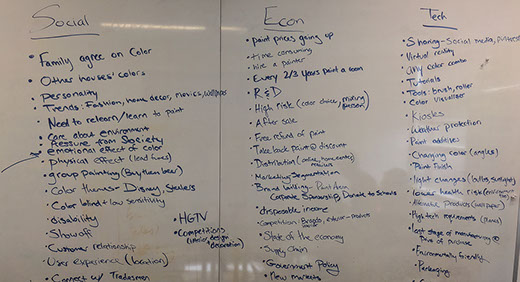 Social
• Family agree on color
• Other houses' colors
• Personality
• Trends: Fashion, home decor, movies,
• Need to relearn/learn to paint
• Care about environment
• Pressure from Society
• emotional effect of color
• physical effect (lead fumes)
• group painting (Buy them beer)
• Color themes - Disney, Steelers
• Color blind + low sensitivity
• disability
• Showoff
• Customer relationship
• User experience (location)
• Connect w/ Tradesmen
• HGTV
• Competitions
(interior design
decoration)
Econ
• paint prices going up
• time consuming
• hire a painter
• Every 2/3 years paint a room
• R&D
• High risk (color choice, mixing
person)
• After sale
• Free refund of paint
• Take back paint @ discount
• Distribution
• Marketing Segmentation
• Brand building -
Corporate Sponsorship Donate to Schools
• disposable income
• Competition:
• State of the economy
• Supply Chain
• Government Policy
• New markets
Tech
• Sharing - Social media, pinterest
• Virtual reality
• color combo
• Tutorials
• Tools: brush, roller
• Color Visualizer
• Kiosks
• Weather protection
• Paint additives
• Changing color (angles)
• Paint finish
• light changes
• lower health risk
• Alternative Products (wallpaper)
• High tech
• last stage of manufacturing @
Place of purchase
• Environmentally friendly
• Packaging